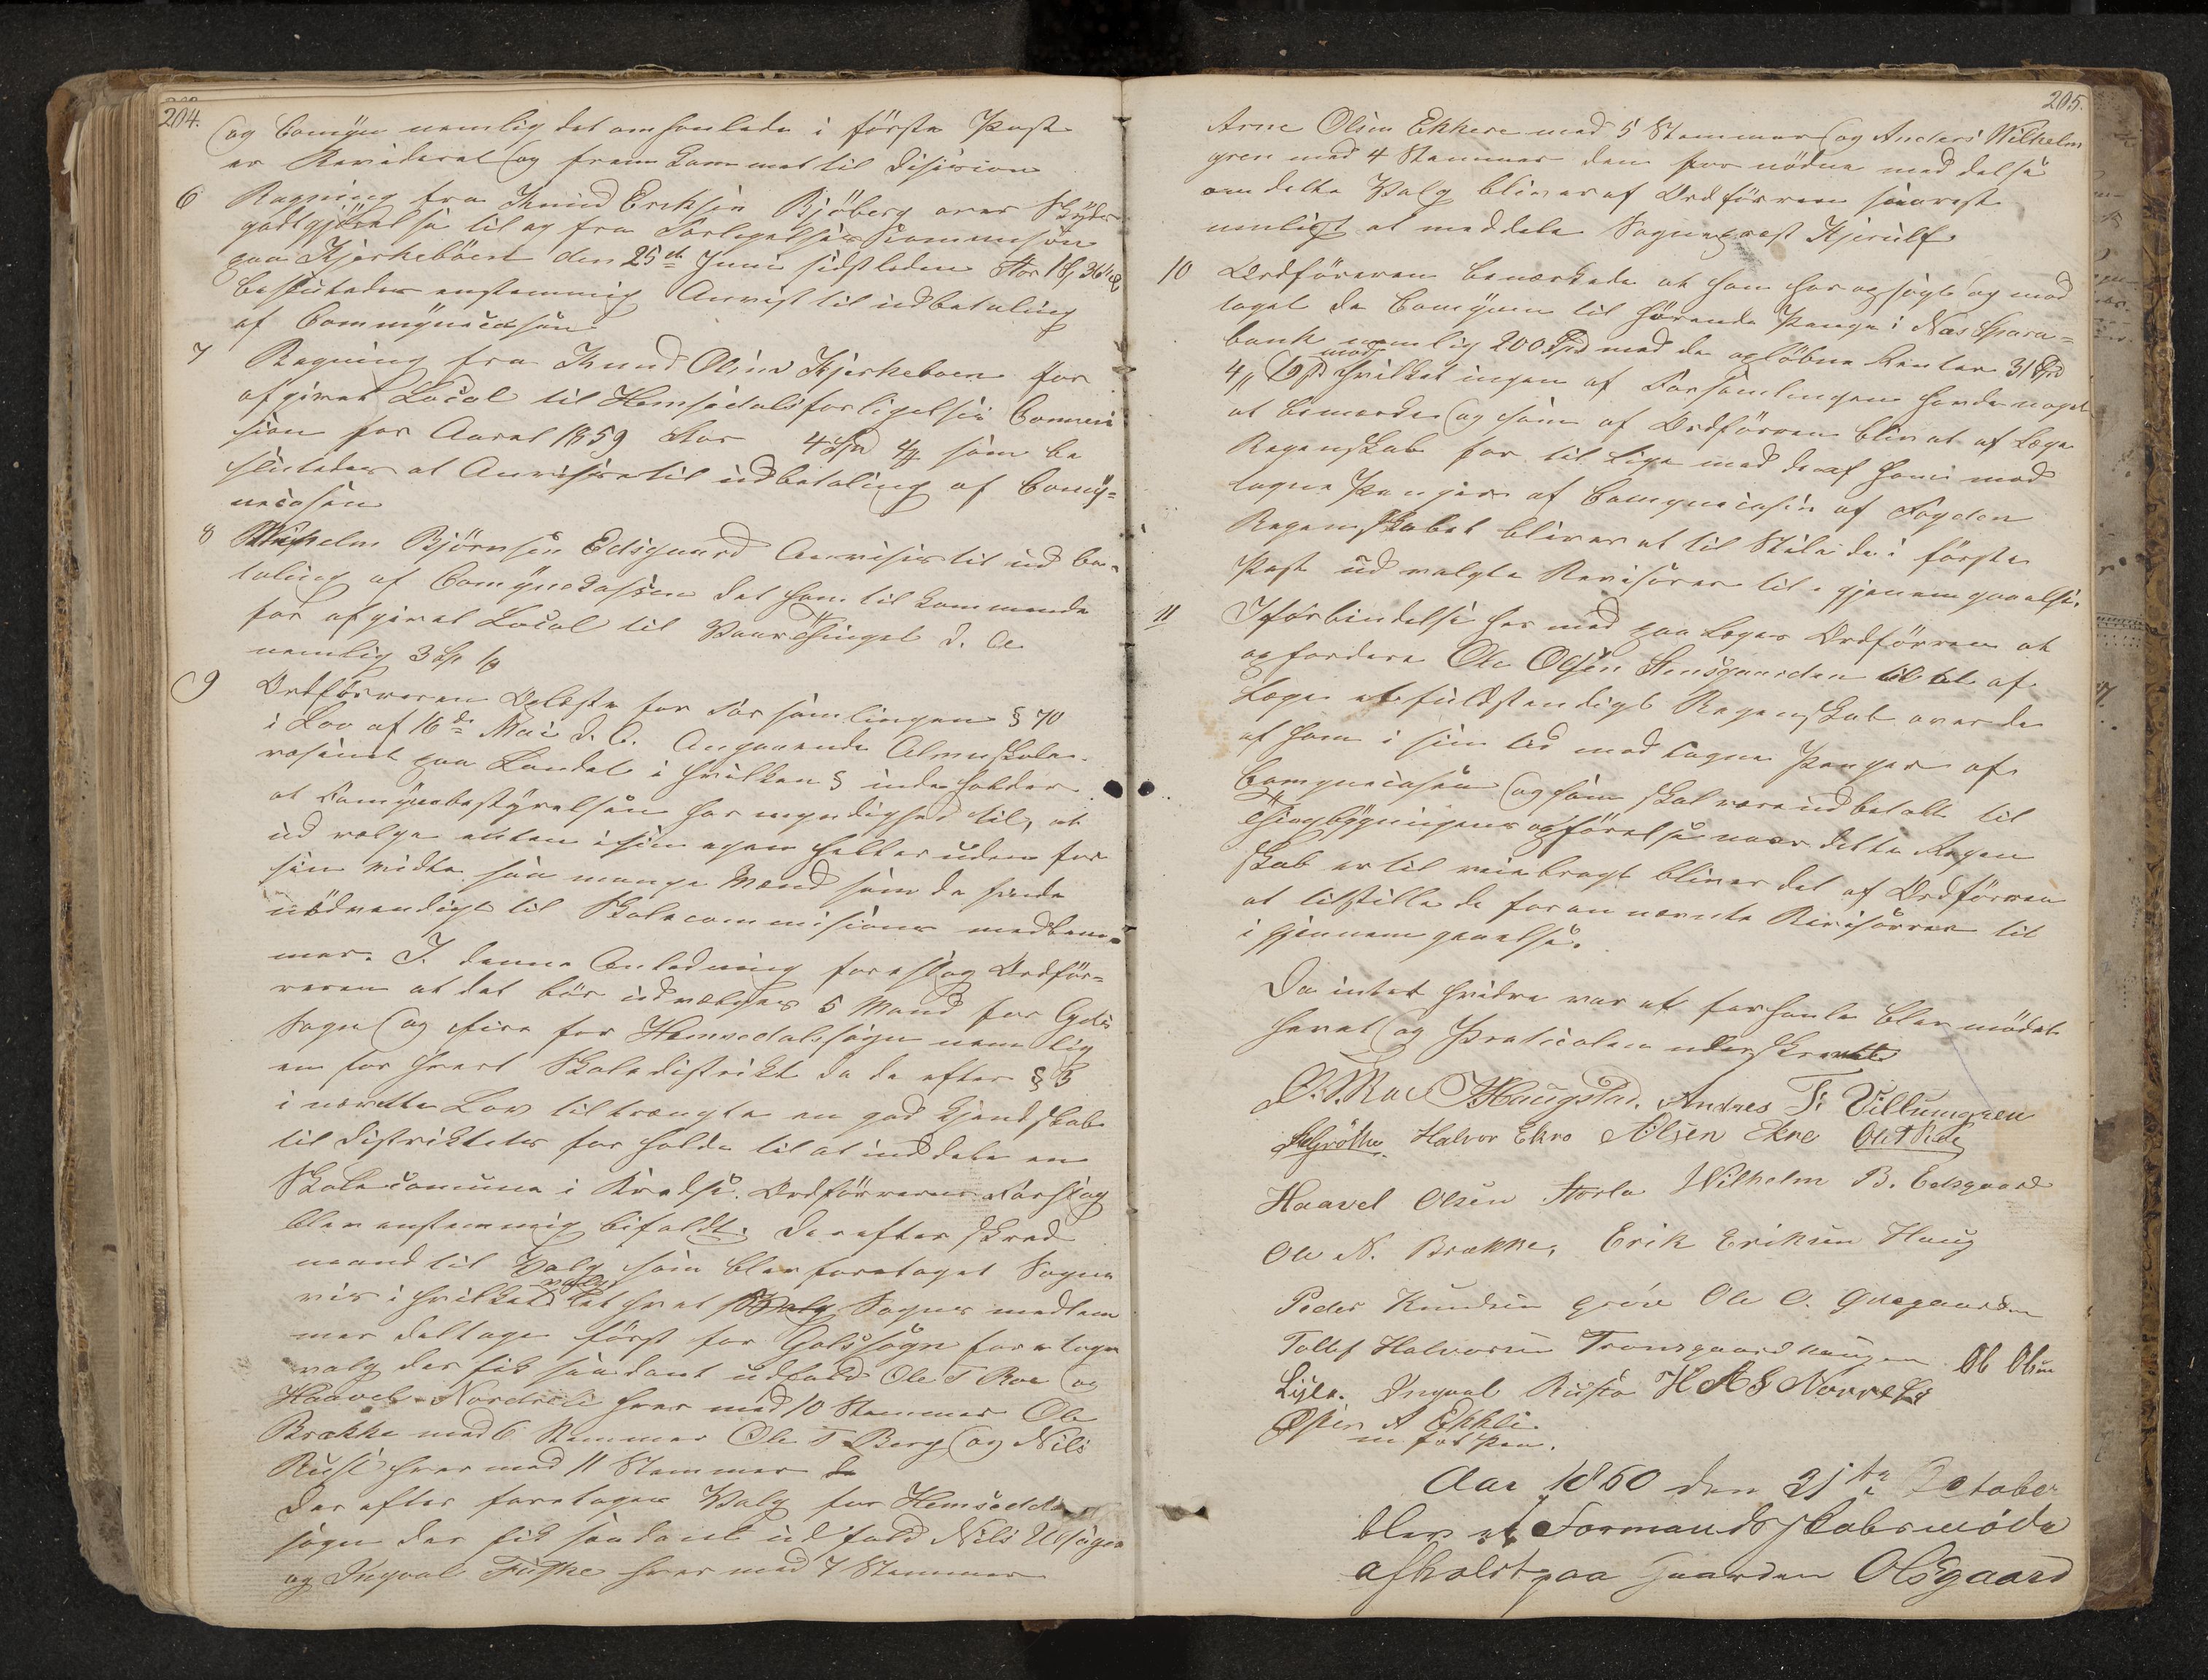 204.
og Comyn nemlig det omhanlede i første Post
er Revideret og fremkommet til Disision
6 Regning fra Knud Eriksen Bjøberg over Skyds
godtgjørelse til og fra Forligelses Commisjon
paa Kjerkebøen den 25de Juni sidstleden stor 1
besluttedes enstemmig Anvist til udbetaling
af Commynecasen
7 Regning fra Knud Olsen Kjerkeboen for
afgivet Local til Hemsedals forligelses Commi
sion for Aaret 1859 stor 4 Spd som be
sluttedes at Anvises til udbetaling af Comy=
necasen
8 Wilhelm Bjørnsen Edsgaard Anvises til udbe-
taling af Comynekassen det ham tilkommende
for afgivet Local til Vaarthinget d. A.
nemlig 3
9 Ordførreren Oplæste for Forsamlingen § 70
i Lov af 16de Mai d. A. Angaaende Almuskole
væsenet paa Landet i hvilken § inde holder
at Comynebestyrelsen har myndighed til, at
udvælge enten i sin egen heller uden for
sin midte saa mange Mænd som de finde
nødvendigt til Skolecommisions medlem=
mer. I denne Anledning foreslog Ordfør=
reren at det bør udvælges 5 Mand for Gols
Sogn og fire for Hemsedals sogn nemlig
en for hvert Skoledistrikt da de efter §
i nævnte Lov tiltrængte en god Kjendskab
til Distriktets forholde til at inddele en
Skolecomune i Kredse. Ordførrerens Forslag
blev enstemmig bifaldt. Derefter skred
mand til Valg som blev foretaget Sogne
vis i hvilket valg hvert Sogns medlem
mer deltoge først for Gols sogn foretoges
valg der fik saadant udfald Ole T Roe og
Haavel Nordreli hver med 10 Stemmer Ole
Brække med 6 Stemmer Ole T Berg og Nils
Rust hver med 11 Stemmer
Derefter foretoges Valg for Hemsedals
sogn der fik saadant udfald Nils Ulsager
og Ingval Fuske hver med 7 Stemmer
205.
Arne Olsen Ekkere med 5 Stemmer og Anders Wilhelm
gren med 4 Stemmer den fornødne meddelse
om dette Valg bliver af Ordførreren snarest
muligt at meddele Sognepræst Kjerulf
10 Ordføreren bemærkede at han har opsagt og mod
taget de Comynen tilhørende Penge i Næs Spare=
bank nemlig 200 Spd med de opløbne Renter 31 Spd
4 mod hvilket ingen af Forsamlingen havde noget
at bemærke og som af Ordførreren bliver at aflægge
Regenskab for tillige med de af ham mod
tagne Penger af Comynecasen af Fogden
Regenskabet bliver at tilstile de i første
Post udvalgte Revisorer til gjenemgaaelse.
11 Iforbindelse her med paalægges Ordførreren at
opfordere Ole Olsen Stensgaarden til at af
lægge et fuldstendigt Regenskab over de
af ham i sin tid modtagne Penger af
Comynecasen og som skal være udbetalt til
Thingbygningens opførelse naar dette Regen
skab er tilveiebragt bliver det af Ordførreren
at tilstille de foran nævnte Revisorer til
i gjennemgaaelse.
Da intet hvidre var at forhanle blev mødet
hævet og Protocolen underskrevet
O. T. Roe Haugstad. Andres T. Villumgren
Halvor Ekro NOlsen Ekre
Haavel Olsen Storla Wilhelm B. Edsgaard
Ole N. Brække, Erik Eriksen Haug
Peder Knudsen grøve Ole O.
Tollef Halvorsen Tronsgaardhaugen Ol Olsen
Ingval
A Ekkli
Aar 1860 den 31te October
blev et Formandskabsmøde
afholdt paa Gaarden Olsgaard